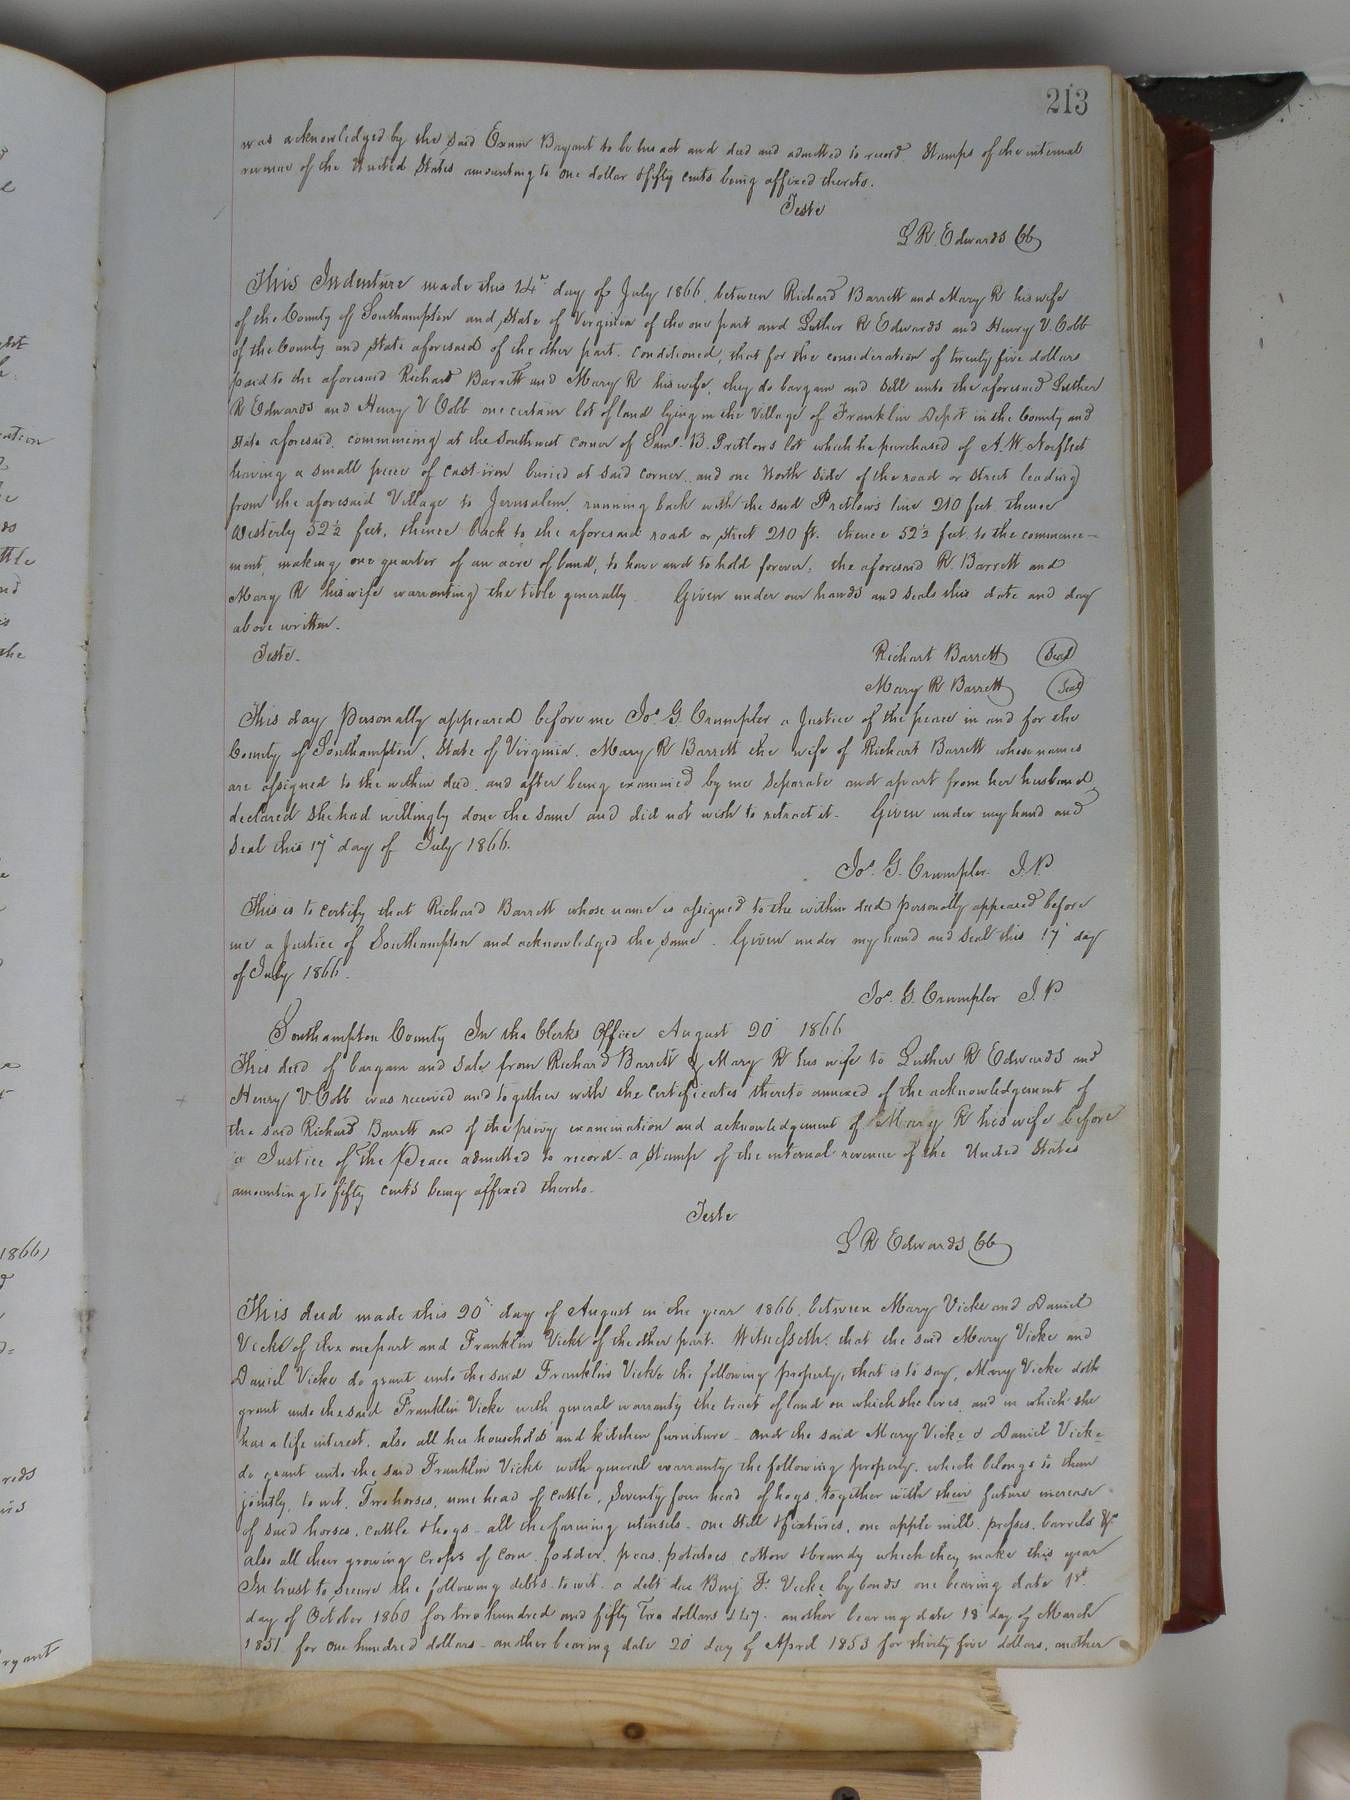 213
was acknowledged by the said Exum Bryant to be his act and deed and admitted to record Stamps of the internal
revenue of the United States amounting to one dollar & fifty cents being affixed thereto.
Teste
L R. Edwards CC
This Indenture made this 14" day of July 1866, between Richard Barrett and Mary R his wife
of the County of Southampton and State of Virginia of the one part and Luther R Edwards and Henry V. Cobb
of the County and State aforesaid of the other part. conditioned, that for the consideration of twenty five dollars
paid to the aforesaid Richard Barrett and Mary R his wife, they do bargain and sell unto the aforesaid Luther
R Edwards and Henry V Cobb one certain lot of land lying in the Village of Franklin Depot in the County and
State aforesaid, commencing at the Southwest corner of Saml. B. Pretlow's lot which he purchased of A. W. Norfleet
having a small piece of cast-iron buried at said corner, and one North side of the road or street leading
from the aforesaid Village to Jerusalem, running back with the said Pretlow's line 210 feet thence
Westerly 52½ feet, thence back to the aforesaid road or street 210 ft. thence 52½ feet to the commence-
ment, making one quarter of an acre of land, to have and to hold forever, the aforesaid R. Barrett and
Mary R his wife warranting the title generally. Given under our hands and seals this date and day
above written.
Teste.
Richart Barrett Seal
Mary R Barrett Seal
This day Personally appeared before me Jos G. Crumpler a Justice of the peace in and for the
County of Southampton, State of Virginia, Mary R Barrett the wife of Richart Barrett whose names
are assigned to the within deed, and after being examined by me separate and apart from her husband
declared she had willingly done the same and did not wish to retract it. Given under my hand and
Seal this 17" day of July 1866.
Jos. G. Crumpler J.P.
This is to certify that Richard Barrett whose name is assigned to the within deed personally appeared before
me a Justice of Southampton and acknowledged the same. Given under my hand and Seal this 17" day
of July 1866.
Jos. G. Crumpler J.P.
Southampton County In the Clerks Office August 20" 1866
This deed of bargain and sale from Richard Barrett & Mary R his wife to Luther R Edwards and
Henry V Cobb was received and together with the certificates thereto annexed of the acknowledgement of
the said Richard Barrett and of the privy examination and acknowledgement of Mary R his wife before
a Justice of the Peace admitted to record - a Stamp of the internal revenue of the United States
amounting to fifty cents being affixed thereto.
Teste
L R Edwards CC
This deed made this 20" day of August in the year 1866, between Mary Vicke and Daniel
Vicke of the one part and Franklin Vicke of the other part. Witnesseth: that the said Mary Vicke and
Daniel Vicke do grant unto the said Franklin Vicke the following property, that is to say, Mary Vicke doth
grant unto the said Franklin Vicke with general warranty the tract of land on which she lives, and in which she
has a life interest, also all her household and kitchen furniture - and the said Mary Vicke & Daniel Vicke
do grant unto the said Franklin Vicke with general warranty the following property, which belongs to them
jointly, to wit, Two horses, nine head of cattle, Seventy four head of hogs, together with their future increase
of said horses, cattle & hogs - all the farming utensils - one still & fixtures, one apple mill, presses, barrels &c
also all their growing crops of corn, fodder, peas, potatoes, cotton & brandy which they make this year
In trust to secure the following debts to wit. a debt due Benj F. Vicke by bonds one bearing date 1st
day of October 1860 for two hundred and fifty Two dollars & 47. another bearing date 18" day of March
1851 for one hundred dollars - another bearing date 20 day of April 1853 for thirty five dollars, another